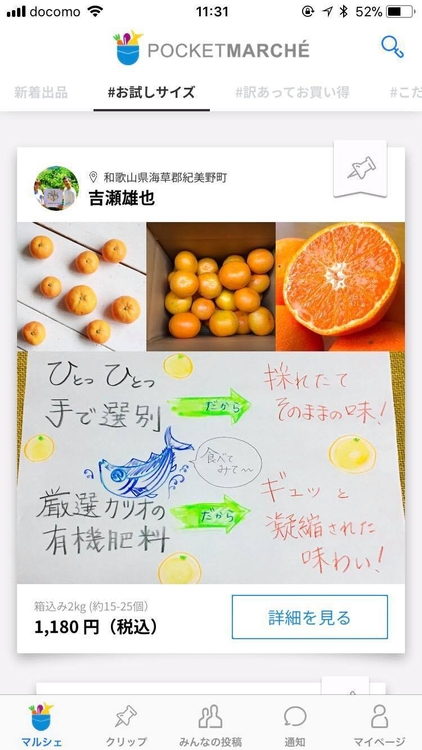 docomo
11:31
52%
POCKETMARCHÉ
新着出品
#お試しサイズ
#訳あってお買い得
#こだ
和歌山県海草郡紀美野町
吉瀬雄也
ひとつ ひとつ
手で選別
だから
採れたて
そのままの味!
食べて
みて〜
厳選カツオの
有機肥料
だから
ギュッと
凝縮された
味わい!
箱込み2kg (約15-25個)
1,180 円（税込）
詳細を見る
マルシェ
クリップ
みんなの投稿
通知
マイページ